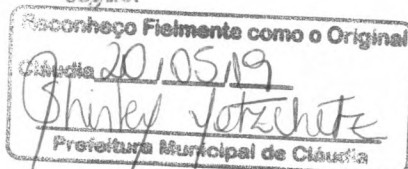 Reconheço Fielmente como o Original
Cláudia 20/05/19
Shirley Yotzchetz
Prefeitura Municipal de Cláudia